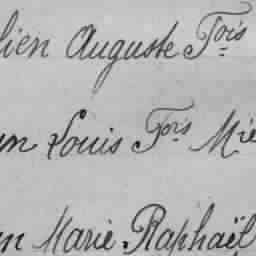 lien Auguste Fois
an Louis Fois Mie
an Marie Raphaël